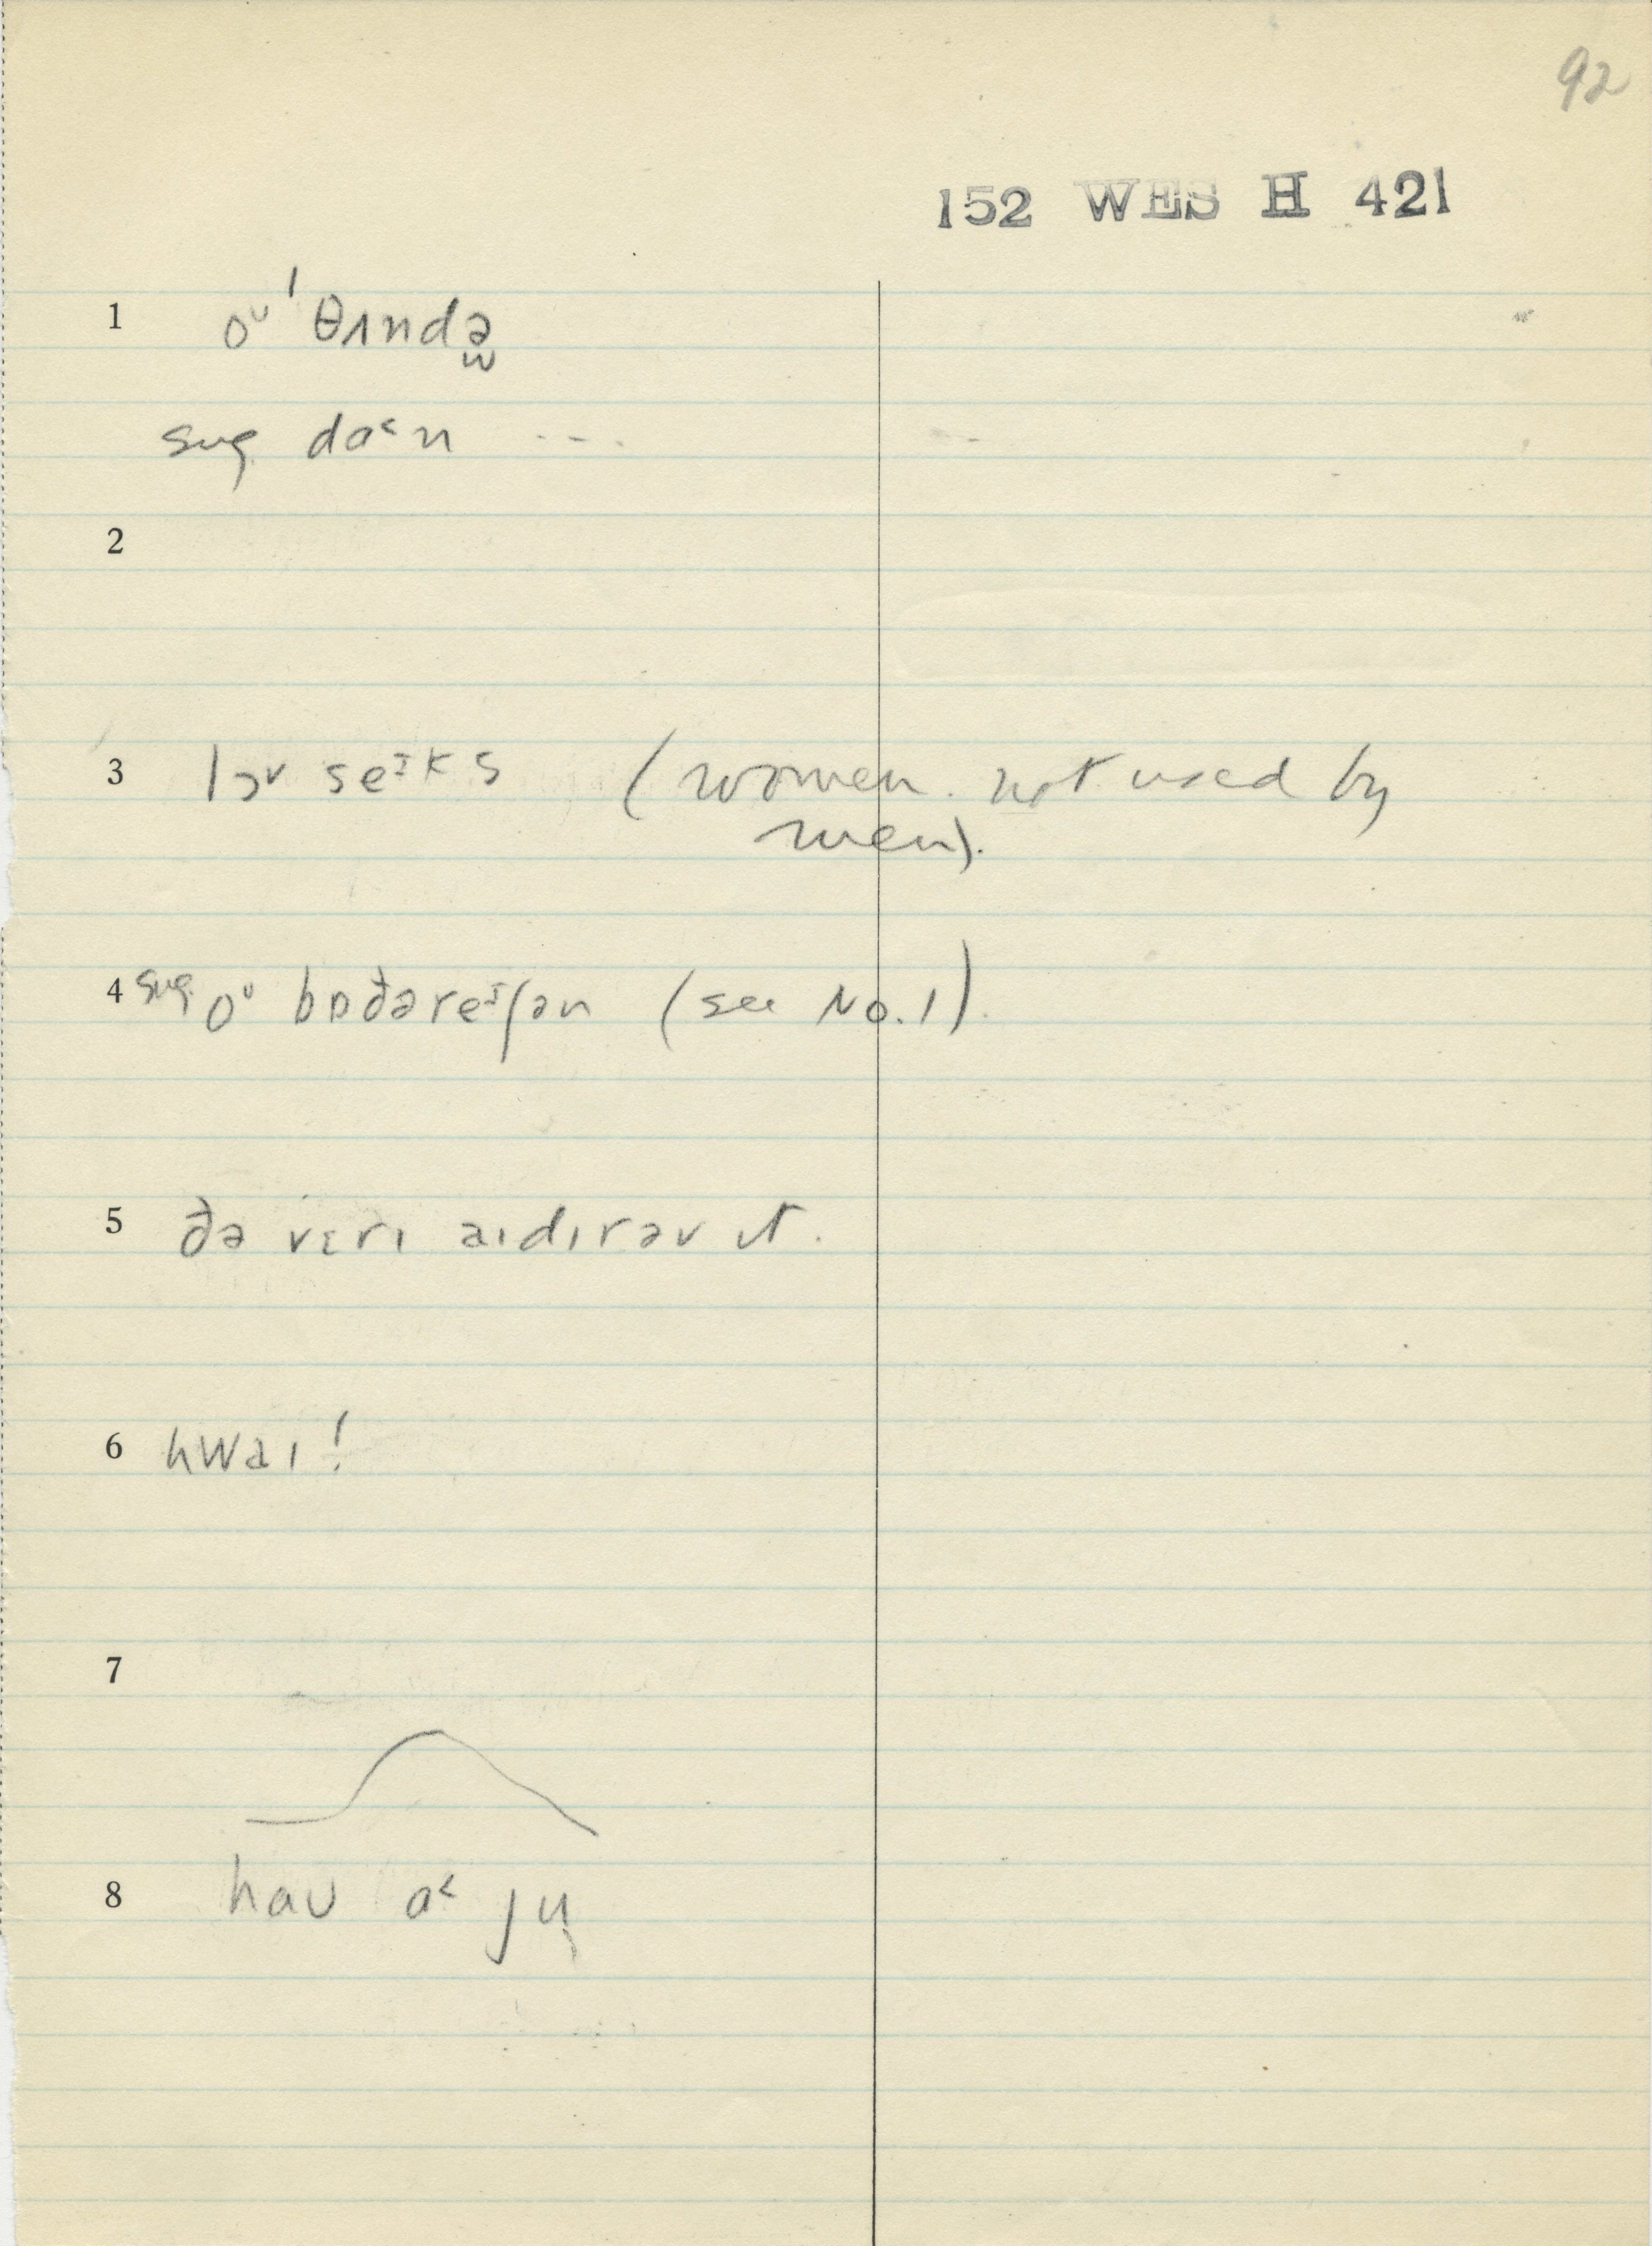 92
152 WES H 421
1 oᶷ ˈθʌndə̫
sug. da˂n ...
2
3 lɔv seᶾks (women. not used by
men).
4 sug. oᶷ bɒðəreᶾʃən (see No. 1).
5 ðə vɛrɪ aɪdɪrəv ɪt.
6 hwaɪ!
7
8 haʊ a˂ ju̜